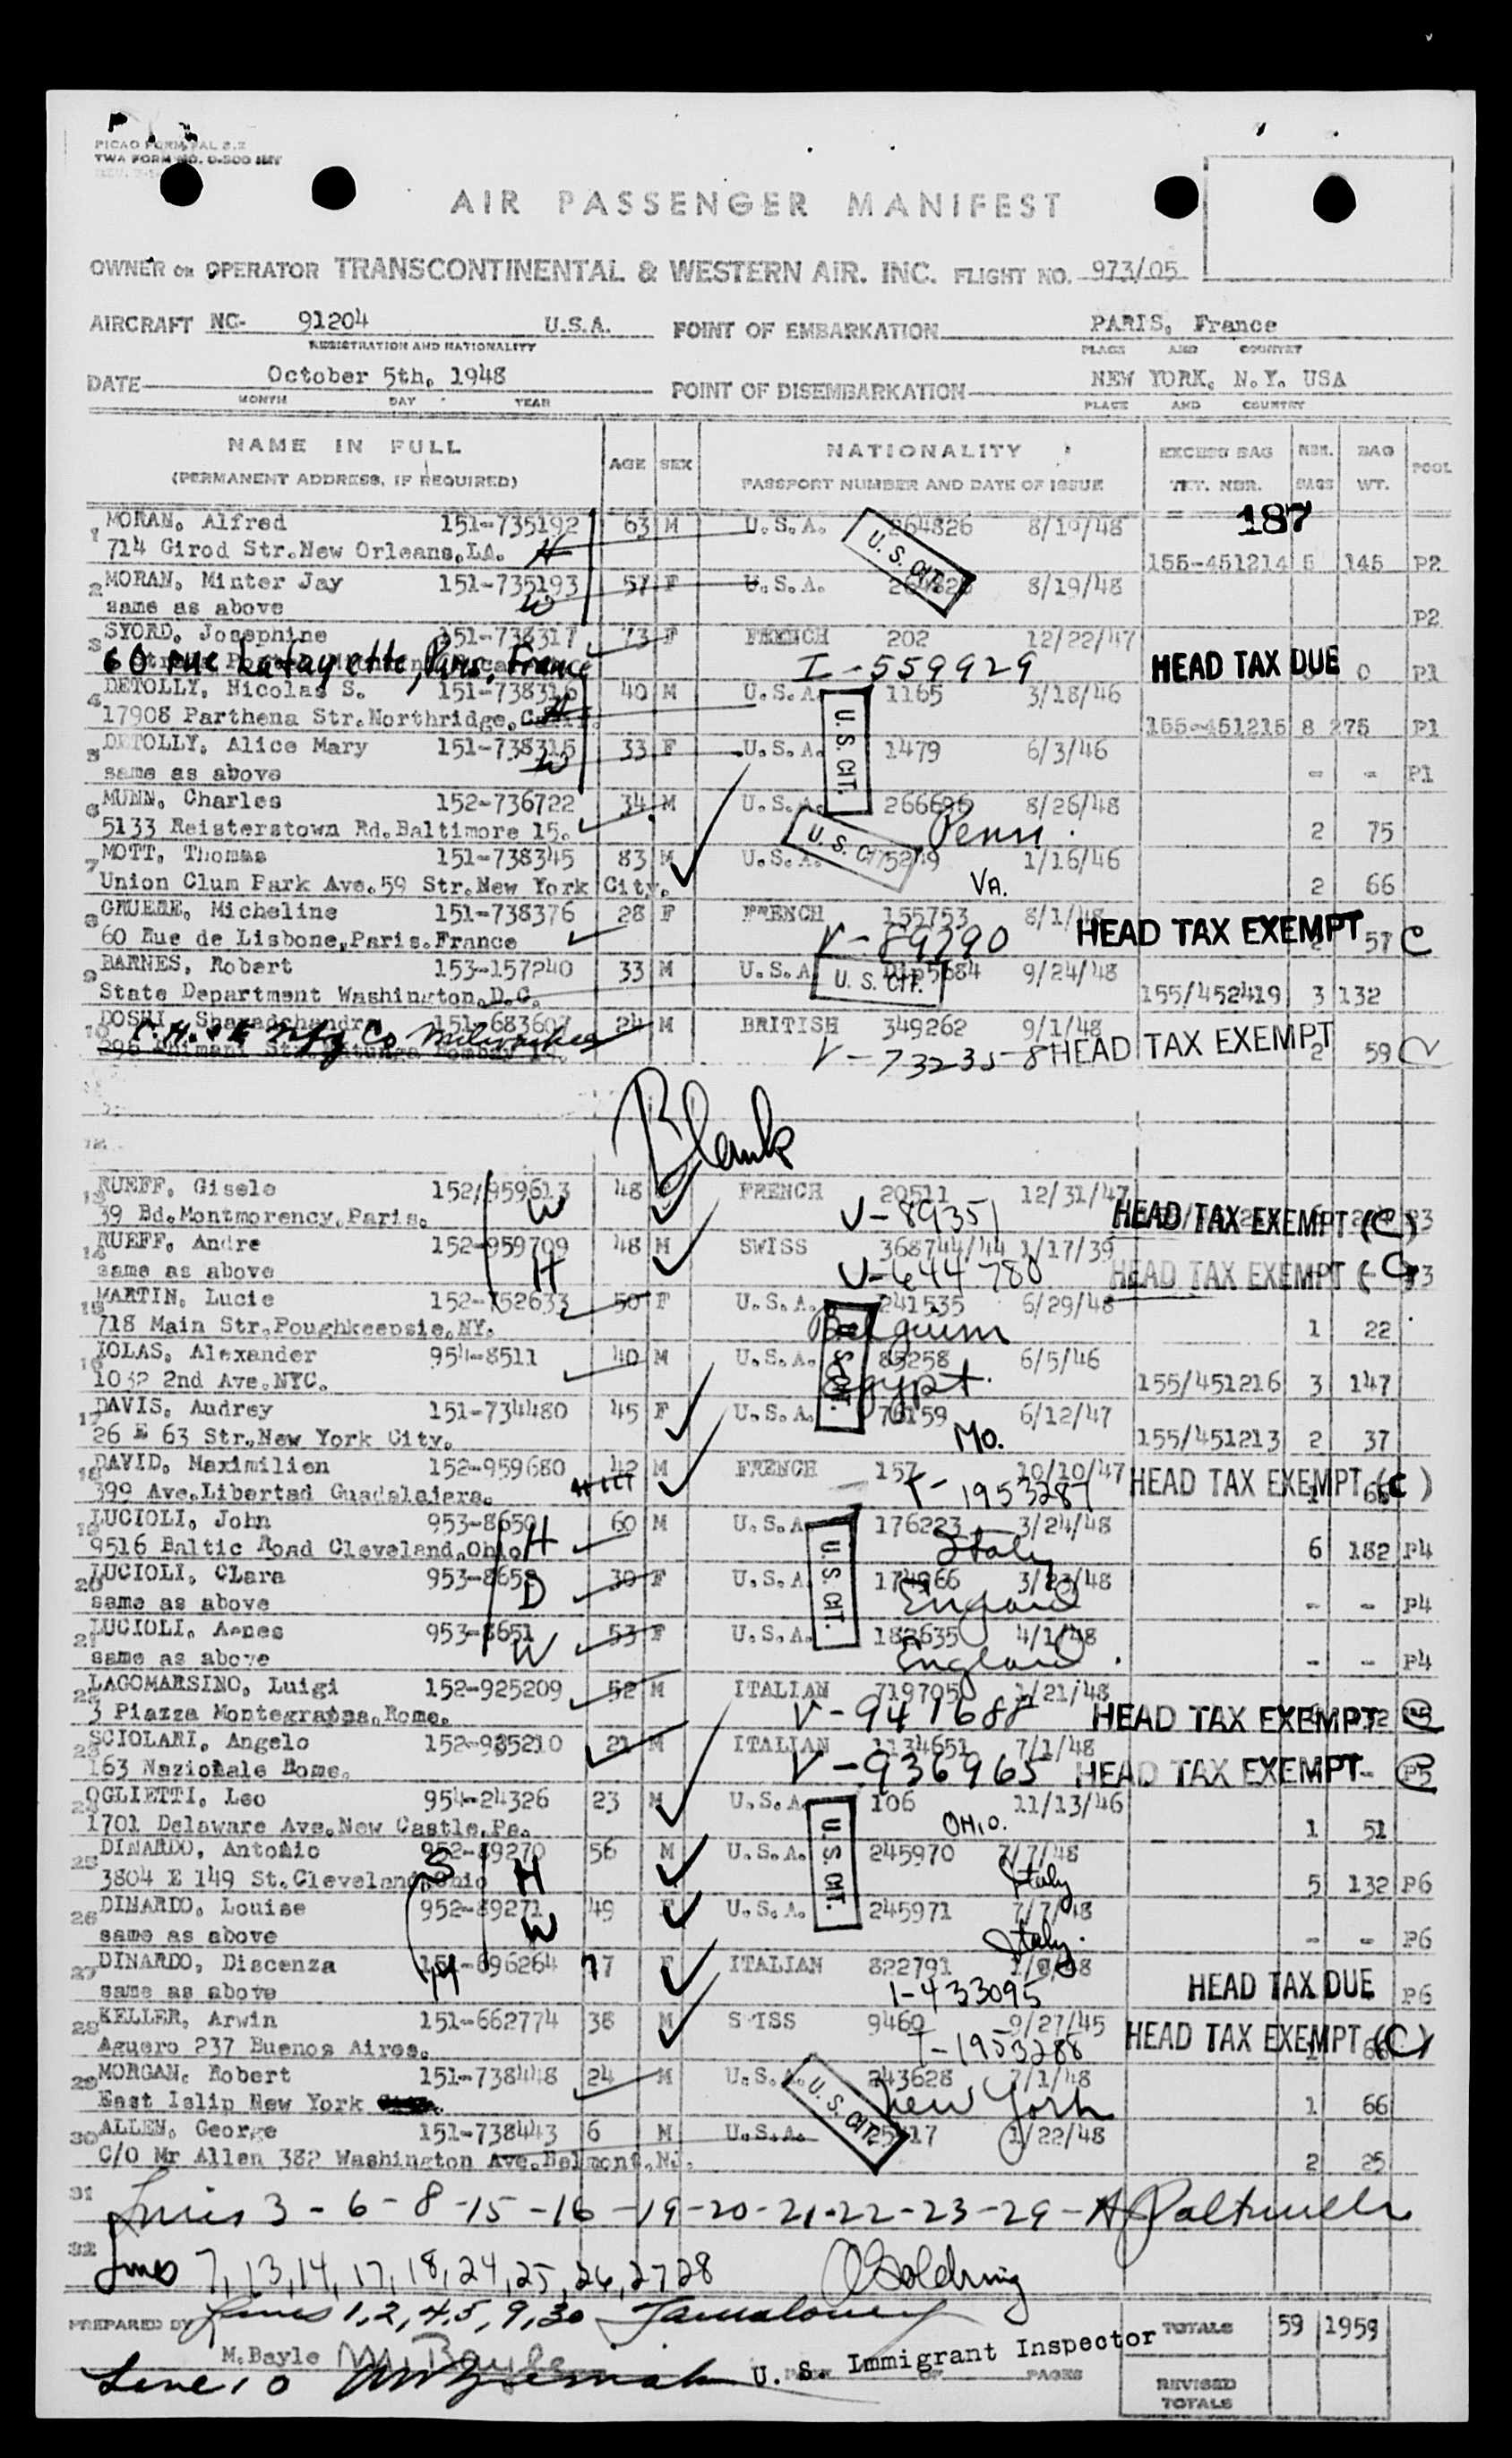 PICAO FORM, PAL 2.2
TWA FORM NO. O-500 INT
AIR PASSENGER MANIFEST
OWNER OR OPERATOR TRANSCONTINENTAL & WESTERN AIR. INC. FLIGHT NO. 973/05
AIRCRAFT NC- 91204 U.S.A. POINT OF EMBARKATION PARIS, France
REGISTRATION AND NATIONALITY PLACE AND COUNTRY
DATE October 5th, 1948 POINT OF DISEMBARKATION NEW YORK, N.Y. USA
MONTH DAY YEAR PLACE AND COUNTRY
NAME IN FULL AGE SEX NATIONALITY EXCESS BAG NBR. BAG POOL
(PERMANENT ADDRESS, IF REQUIRED) PASSPORT NUMBER AND DATE OF ISSUE TKT. NBR. BAGS WT.
187
1 MORAN, Alfred 151-735192 63 M U.S.A. 264826 8/19/48
714 Girod Str.New Orleans,LA. H U.S. CIT. 155-451214 5 145 P2
2 MORAN, Minter Jay 151-735193 57 F U.S.A. 8/19/48
same as above W P2
3 SYORD, Josephine 151-738317 73 F FRENCH 202 12/22/47
60 rue Lafayette, Paris, France I-559929 HEAD TAX DUE 0 P1
4 DETOLLY, Nicolas S. 151-738316 40 M U.S.A. 1165 3/18/46
17908 Parthena Str.Northridge, H U.S. CIT. 155-451215 8 275 P1
5 DETOLLY, Alice Mary 151-738315 33 F U.S.A. 1479 6/3/46
same as above W - - P1
6 MUNN, Charles 152-736722 34 M U.S.A. 266695 8/26/48
5133 Reisterstown Rd.Baltimore 15. Penn. 2 75
7 MOTT, Thomas 151-738345 83 M U.S.A. U.S. CIT. 1/16/46
Union Clum Park Ave.59 Str.New York City. VA. 2 66
8 GRUERE, Micheline 151-738376 28 F FRENCH 155753 8/1/48
60 Rue de Lisbone,Paris.France V-89790 HEAD TAX EXEMPT 57 C
9 BARNES, Robert 153-157240 33 M U.S.A. 9/24/48
State Department Washington,D.C. U.S. CIT. 155/452419 3 132
10 DOSHI, Sharadchandra 151-683607 24 M BRITISH 349262 9/1/48
C.H. & E Mfg Co Milwaukee V-732358 HEAD TAX EXEMPT 2 59
Blank
12
13 RUEFF, Gisele 152/959613 48 FRENCH 20511 12/31/47
39 Bd.Montmorency,Paris. W V-89351 HEAD TAX EXEMPT (C) P3
14 RUEFF, Andre 152-959709 48 M SWISS 368744/44 1/17/39
same as above H V-644780 HEAD TAX EXEMPT (C) P3
15 MARTIN, Lucie 152-752633 50 F U.S.A. 241535 6/29/48
718 Main Str.Poughkeepsie,NY. Belgium 1 22
16 IOLAS, Alexander 954-8511 40 M U.S.A. 85258 6/5/46
1032 2nd Ave.NYC. U.S. CIT. Egypt. 155/451216 3 147
17 DAVIS, Audrey 151-734480 45 F U.S.A. 76159 6/12/47
26 E 63 Str.New York City. Mo. 155/451213 2 37
18 DAVID, Maximilien 152-959680 42 M FRENCH 157 10/10/47
399 Ave.Libertad Guadalajara. T-1953287 HEAD TAX EXEMPT (C)
19 LUCIOLI, John 953-8650 60 M U.S.A. 176223 3/24/48
9516 Baltic Road Cleveland,Ohio H Italy 6 182 P4
20 LUCIOLI, CLara 953-8652 30 F U.S.A. 174966 3/23/48
same as above D U.S. CIT. England - - P4
21 LUCIOLI, Agnes 953-8651 53 F U.S.A. 182635 4/1/48
same as above W England. - - P4
22 LAGOMARSINO, Luigi 152-925209 52 M ITALIAN 719705 1/21/48
3 Piazza Montegrappa,Rome. V-947688 HEAD TAX EXEMPT
23 SCIOLARI, Angelo 152-925210 21 M ITALIAN 1134651 7/1/48
163 Nazionale Rome. V-936965 HEAD TAX EXEMPT - P5
24 OGLIETTI, Leo 954-24326 23 M U.S.A. 106 11/13/46
1701 Delaware Ave.New Castle,Pa. OHIO. 1 51
25 DINARDO, Antonio 952-89270 56 M U.S.A. 245970 7/7/48
3804 E 149 St.Cleveland,Ohio S H U.S. CIT. Italy 5 132 P6
26 DINARDO, Louise 952-89271 49 F U.S.A. 245971 7/7/48
same as above W Italy. - - P6
27 DINARDO, Discenza 151-696264 77 F ITALIAN 822791 1/9/48
same as above M I-433095 HEAD TAX DUE P6
28 KELLER, Arwin 151-662774 38 M SWISS 9460 9/27/45
Aguero 237 Buenos Aires. T-1953288 HEAD TAX EXEMPT (C)
29 MORGAN, Robert 151-738448 24 M U.S.A. 243628 7/1/48
East Islip New York New York 1 66
30 ALLEN, George 151-738443 6 M U.S.A. U.S. CIT. 1/22/48
C/O Mr Allen 382 Washington Ave.Belmont,NJ. 2 25
31 Lines 3-6-8-15-16-19-20-21-22-23-29-
32 Lines 7,13,14,17,18,24,25,26,27 28 Goldring
PREPARED BY Lines 1,2,4,5,9,30 TOTALS 59 1959
M.Bayle M. Bayle U. S. Immigrant Inspector PAGES
Line 10 REVISED
TOTALS